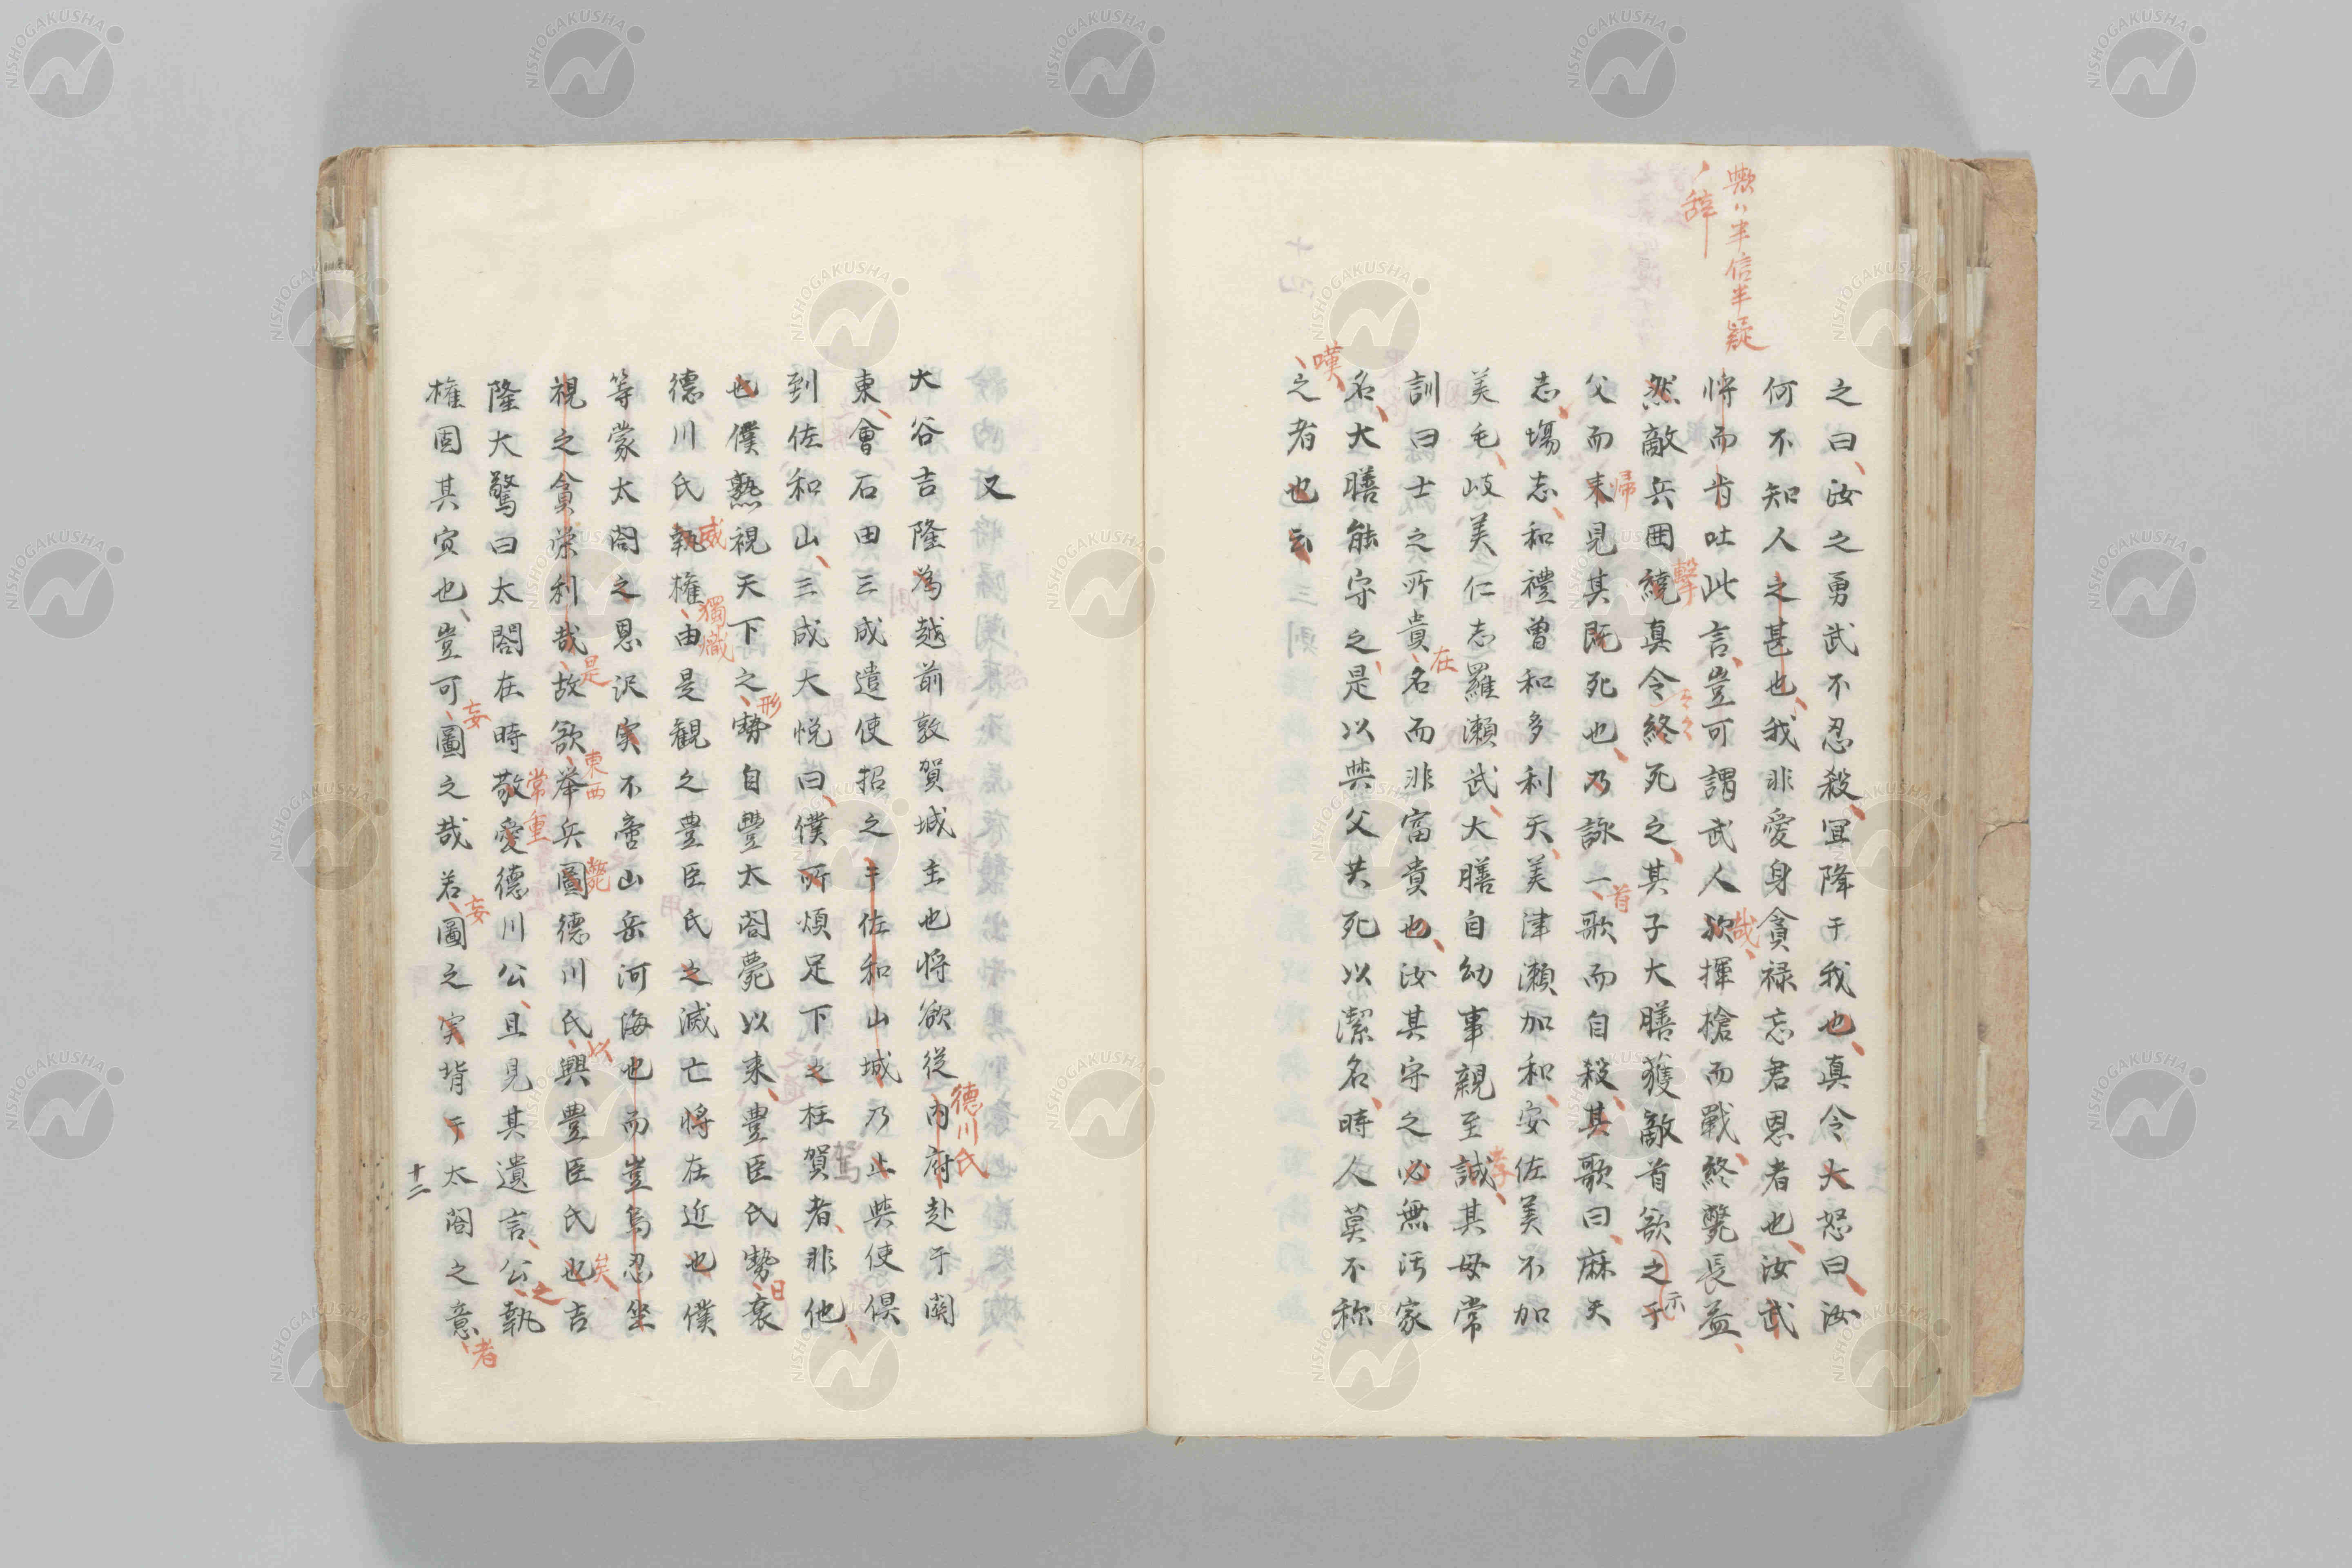 歟ハ半信半疑
ノ辞
之曰汝之勇武不忍殺冝降于我也真令大怒曰汝
何不知人之甚也我非愛身貪禄忘君恩者也汝武
将而肯吐此言豈可謂武人欤揮槍而戰終斃長益
哉
然敵兵囲繞真令終死之其子大膳獲敵首欲之于
撃
示
父而来見其既死也乃詠一歌而自殺其歌曰麻天
帰
首
志塲志和禮曽和多利天美津瀬加和安佐美不加
美毛岐美仁志羅瀬武大膳自幼事親至誠其母常
孝
訓曰士之所貴名而非富貴也汝其守之必無汚家
在
名大膳能守之是以與父共死以潔名時人莫不称
嘆
之者也云
又
大谷吉隆為越前敦賀城主也将欲従内府赴于関
德川氏
東會石田三成遣使招之于佐和山城乃止與使俱
到佐和山三成大悦曰僕所煩足下之枉賀者非他
駕
也僕熟視天下之勢自豐太閤薨以来豊臣氏勢衰
形
日
德川氏執權由是観之豊臣氏之滅亡将在近也僕
威
獨熾
等蒙太閤之恩沢実不啻山岳河海也而豈烏忍坐
視之貪栄利哉故欲举兵圖德川氏興豊臣氏也吉
是
東西
斃
以
矣
隆大驚曰太閤在時敬愛德川公且見其遺言公執
常重
之
權固其宜也豈可圖之哉若圖之実背于太閤之意
妄
妄
者
十二
NISHOGAKUSHA